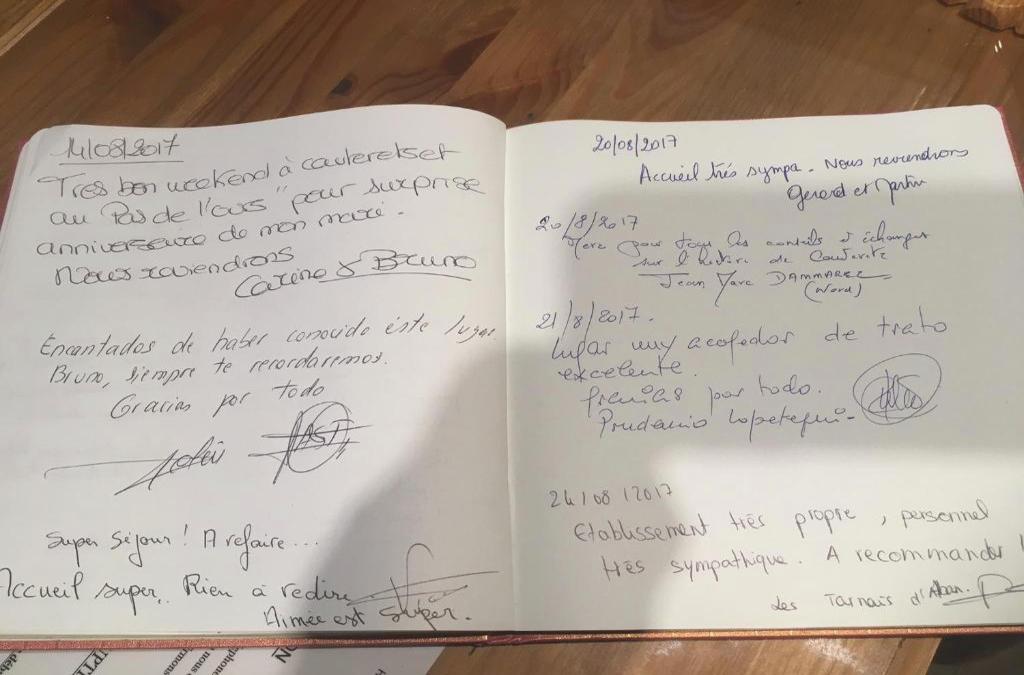 14/08/2017
Tres bon weekend à cauterets et
au Pas de l'ours" pour surprise
anniversaire de mon mari.
Nous reviendrons
Carine & Bruno
Encantados de haber conocido éste lugar.
Bruno, siempre te recordaremos.
Gracias por todo
Super Séjour! A refaire...
Accueil super. Rien à redire
Aimée est super.
20/08/2017
Accueil très sympa. Nous reviendrons
Gerard et Martin
20/8/2017
pour tous les conseils d'échanges
sur l'histoire de Cauterets
Jean Marc DAMMAREZ
(Nord)
21/8/2017.
lugar muy acogedor de trato
excelente.
Gracias por todo.
Prudencio Lopetegui-
24/08/2017
Etablissement très propre, personnel
très sympathique. A recommander !
Les Tarnais d'Alban.